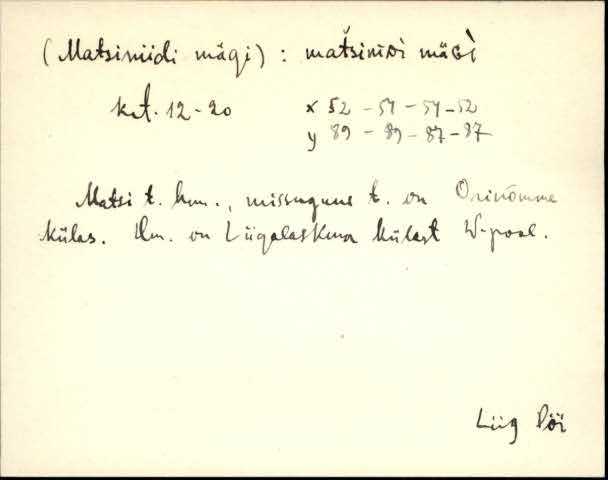 (Matsiniidi mägi) : matšinìɪ̯Dì mäɢì
krt. 12-20 x 52 - 54 - 54 - 52
y 89 - 89 - 87 - 87
Matsi t. hm., missugune t. on Orinõmme
külas. Hm. on Liigalaskma külast W-pool.
Liig Pöi